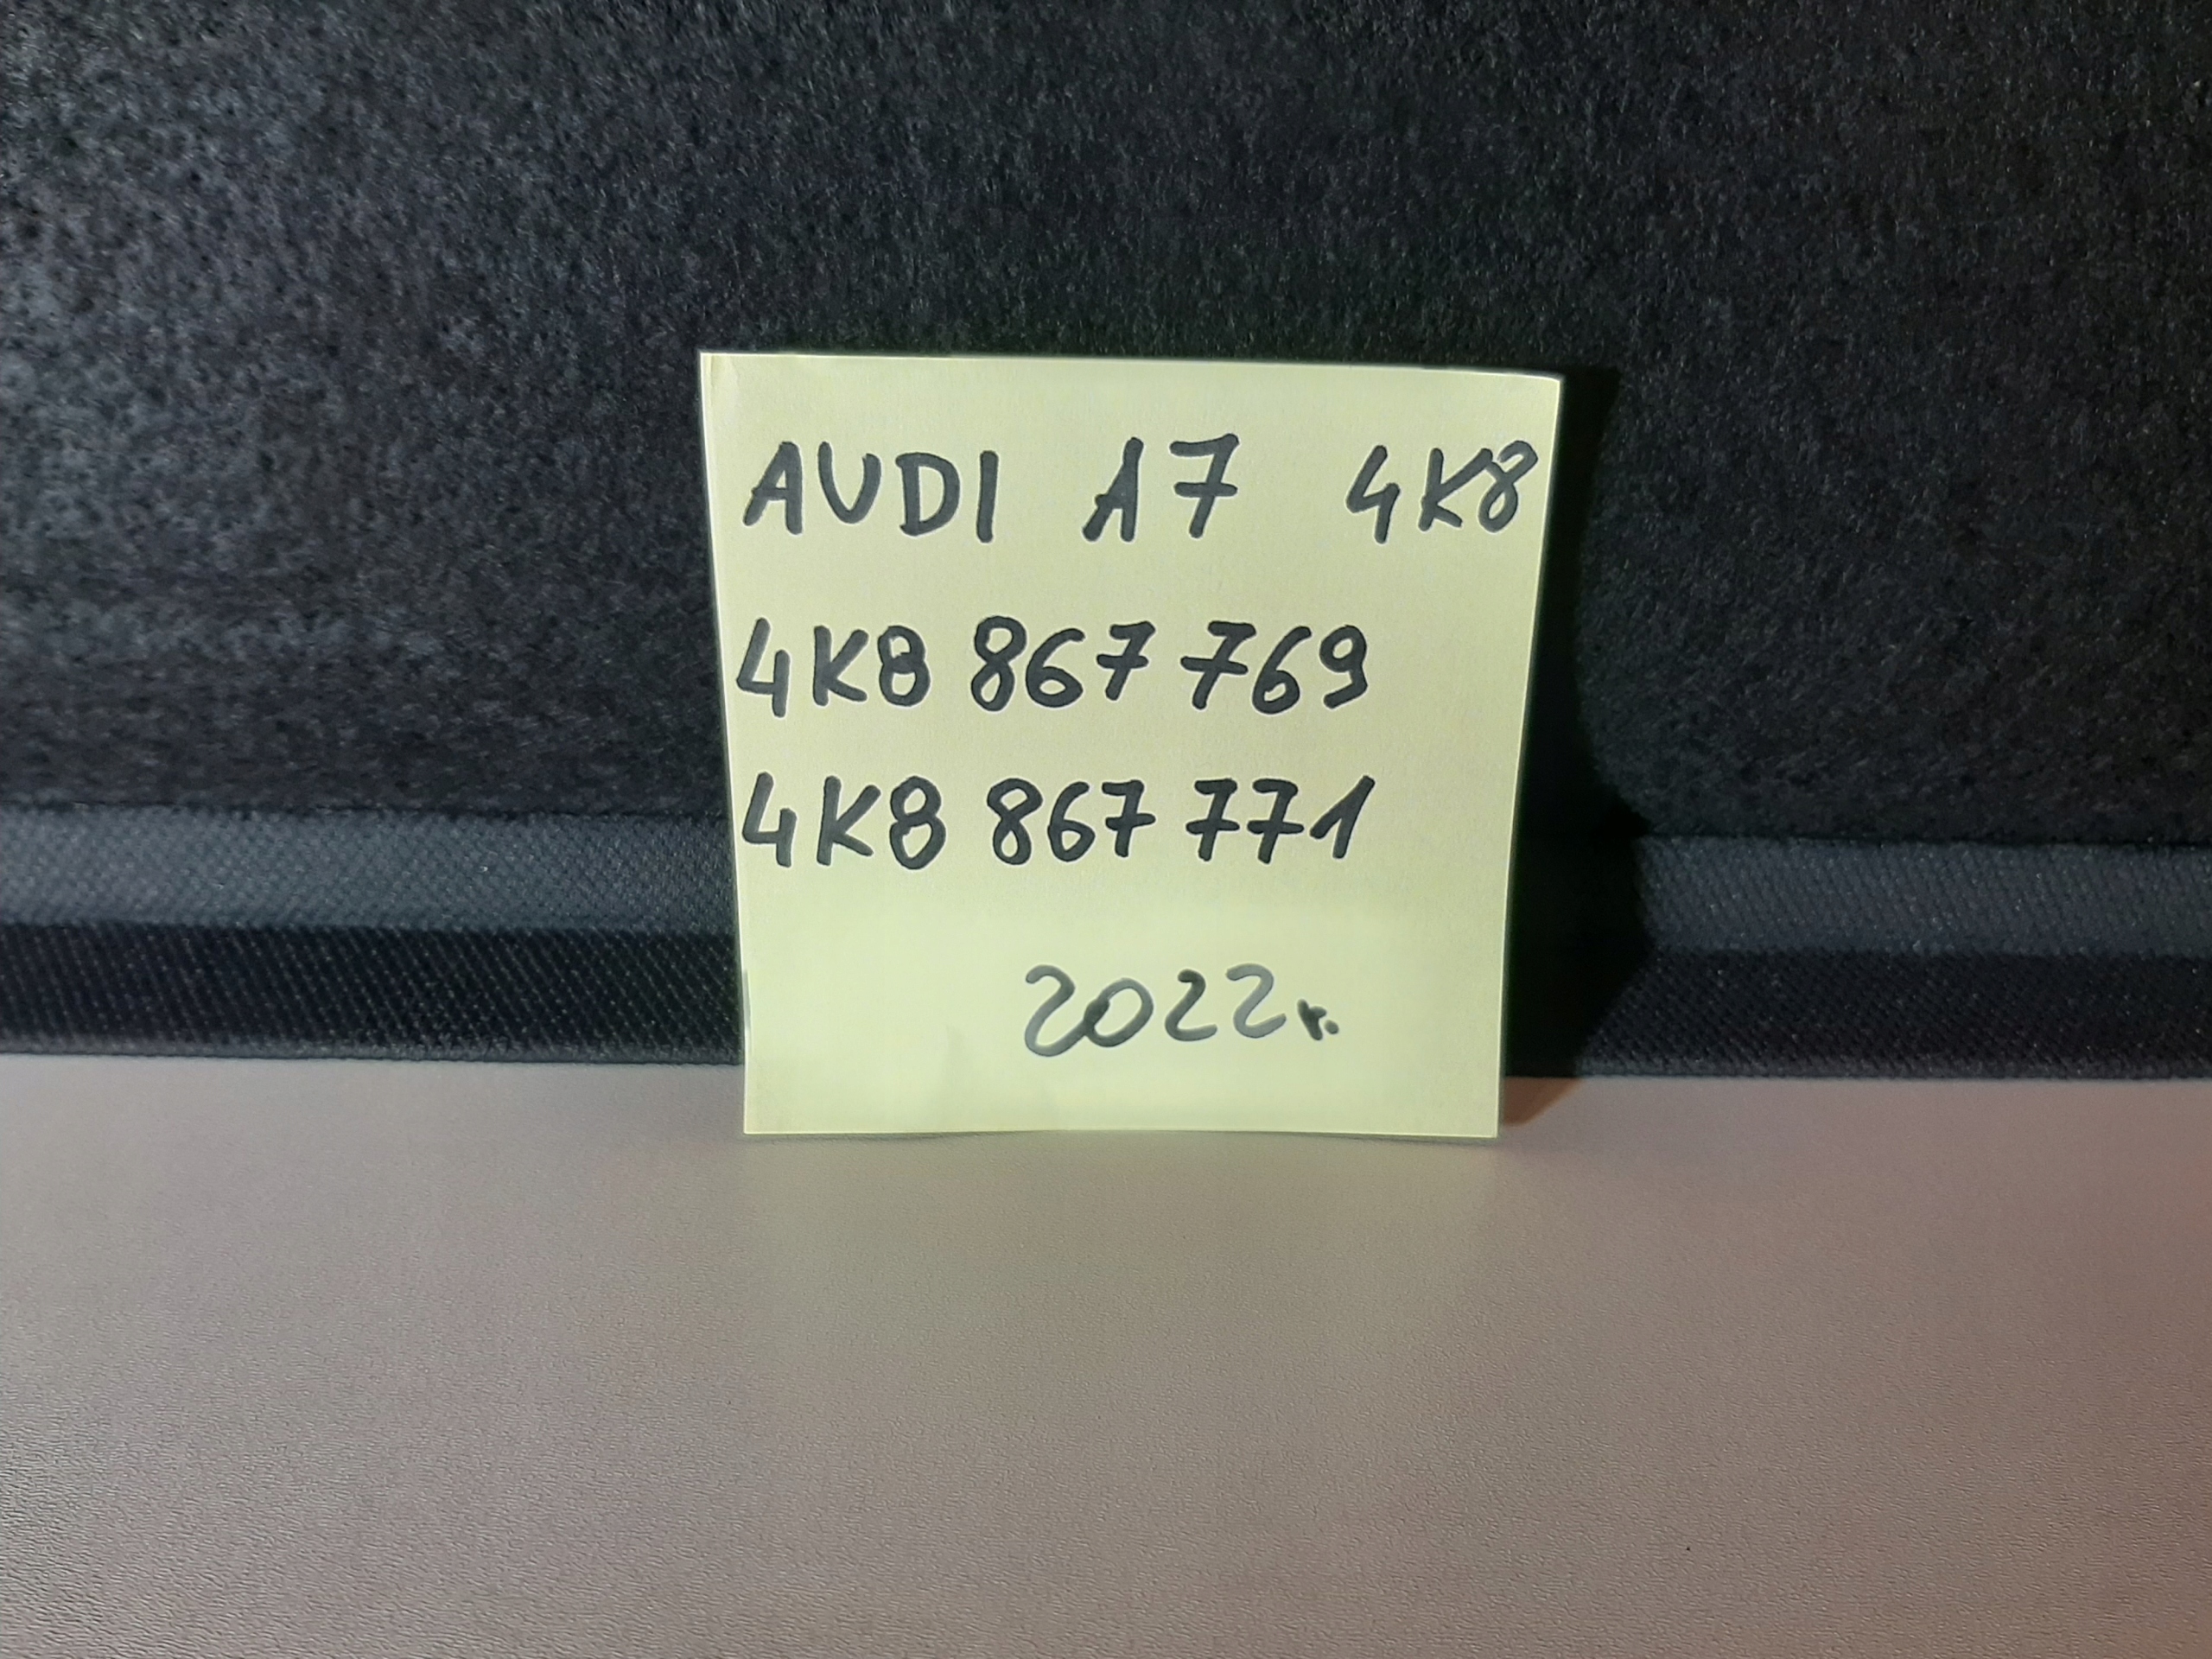 AUDI A7 4K8
4K8 867 769
4K8 867 771
2022r.